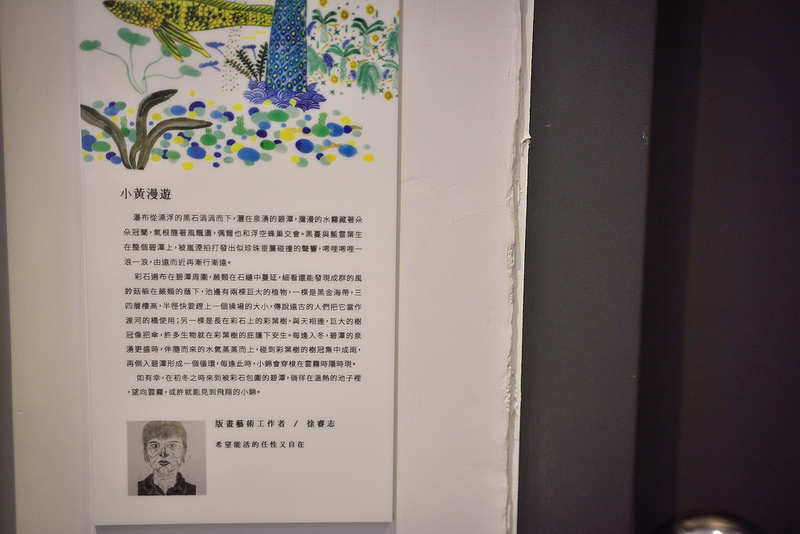 小黃漫遊
瀑布從漂浮的黑石涓涓而下，灑在泉湧的碧潭，瀰漫的水霧藏著朵
朵冠蘭，氣根隨著風飄盪，偶爾也和浮空蜂巢交會。黑蔓與藍雲葉生
在整個碧潭上，被嵐湮拍打發出似珍珠垂簾碰撞的聲響，唏哩唏哩一
浪一浪，由遠而近再漸行漸遠。
彩石遍布在碧潭周圍，蕨類在石縫中蔓延，細看還能發現成群的風
鈴菇躲在蕨類的蔭下，池邊有兩棵巨大的植物，一棵是黑金海帶，三
四層樓高，半徑快要趕上一個操場的大小，傳說遠古的人們把它當作
渡河的橋使用；另一棵是長在彩石上的彩葉樹，與天相連，巨大的樹
冠像把傘，許多生物就在彩葉樹的庇護下安生。每逢入冬，碧潭的泉
湧更盛時，伴隨而來的水氣蒸蒸而上，碰到彩葉樹的樹冠集中成雨，
再倒入碧潭形成一個循環，每逢此時，小錦會穿梭在雲霧時隱時現。
如有幸，在初冬之時來到被彩石包圍的碧潭，徜徉在溫熱的池子裡
，望向雲霧，或許就能見到飛翔的小錦。
版畫藝術工作者 / 徐睿志
希望能活的任性又自在